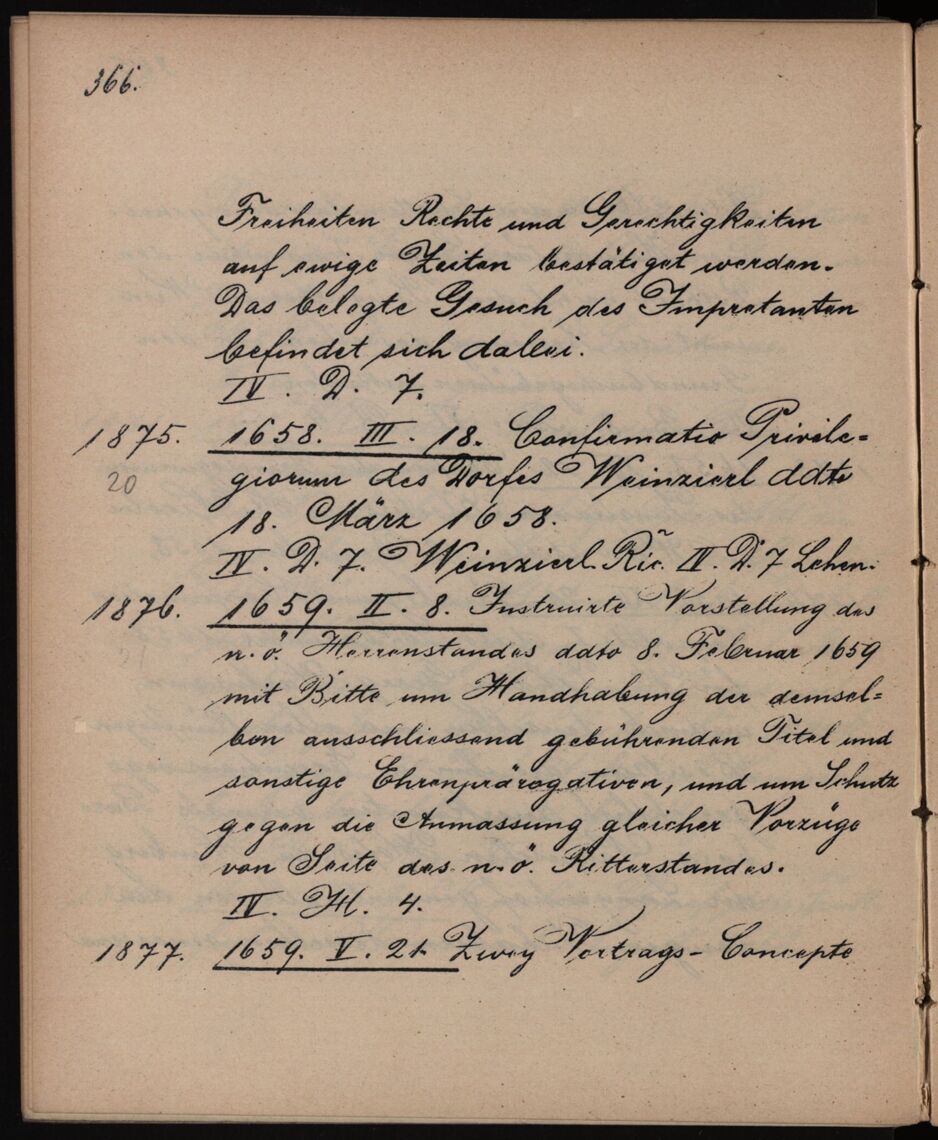 366.
Freiheiten Rechte und Gerechtigkeiten
auf ewige Zeiten bestätiget werden.
Das belegte Gesuch des Impretanten
befindet sich dabei.
IV. D. 7.
1875. 1658. III. 18. Confirmatio Privile=
20 giorum des Dorfes Weinzierl ddto
18. März 1658.
IV. D. 7. Weinzierl. Ric. IV. D. 7 Lehen.
1876. 1659. II. 8. Instruirte Vorstellung des
21 n. ö. Herrenstandes ddto 8. Februar 1659
mit Bitte um Handhabung der demsel=
ben ausschliessend gebührenden Titel und
sonstige Ehrenprärogativen, und um Schutz
gegen die Anmassung gleicher Vorzüge
von Seite des n. ö. Ritterstandes.
IV. H. 4.
1877. 1659. V. 21. Zwey Vortrags-Concepte